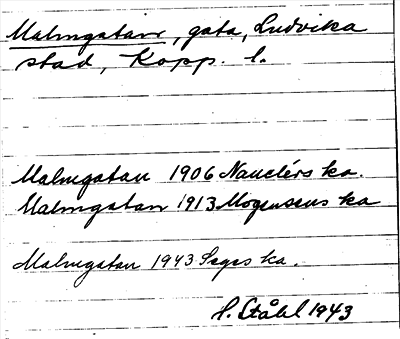 Malmgatan, gata, Ludvika
stad, Kopp. l.
Malmgatan 1906 Nauclérs ka.
Malmgatan 1913 Mogensens ka
Malmgatan 1943 ka.
H. Ståhl 1943